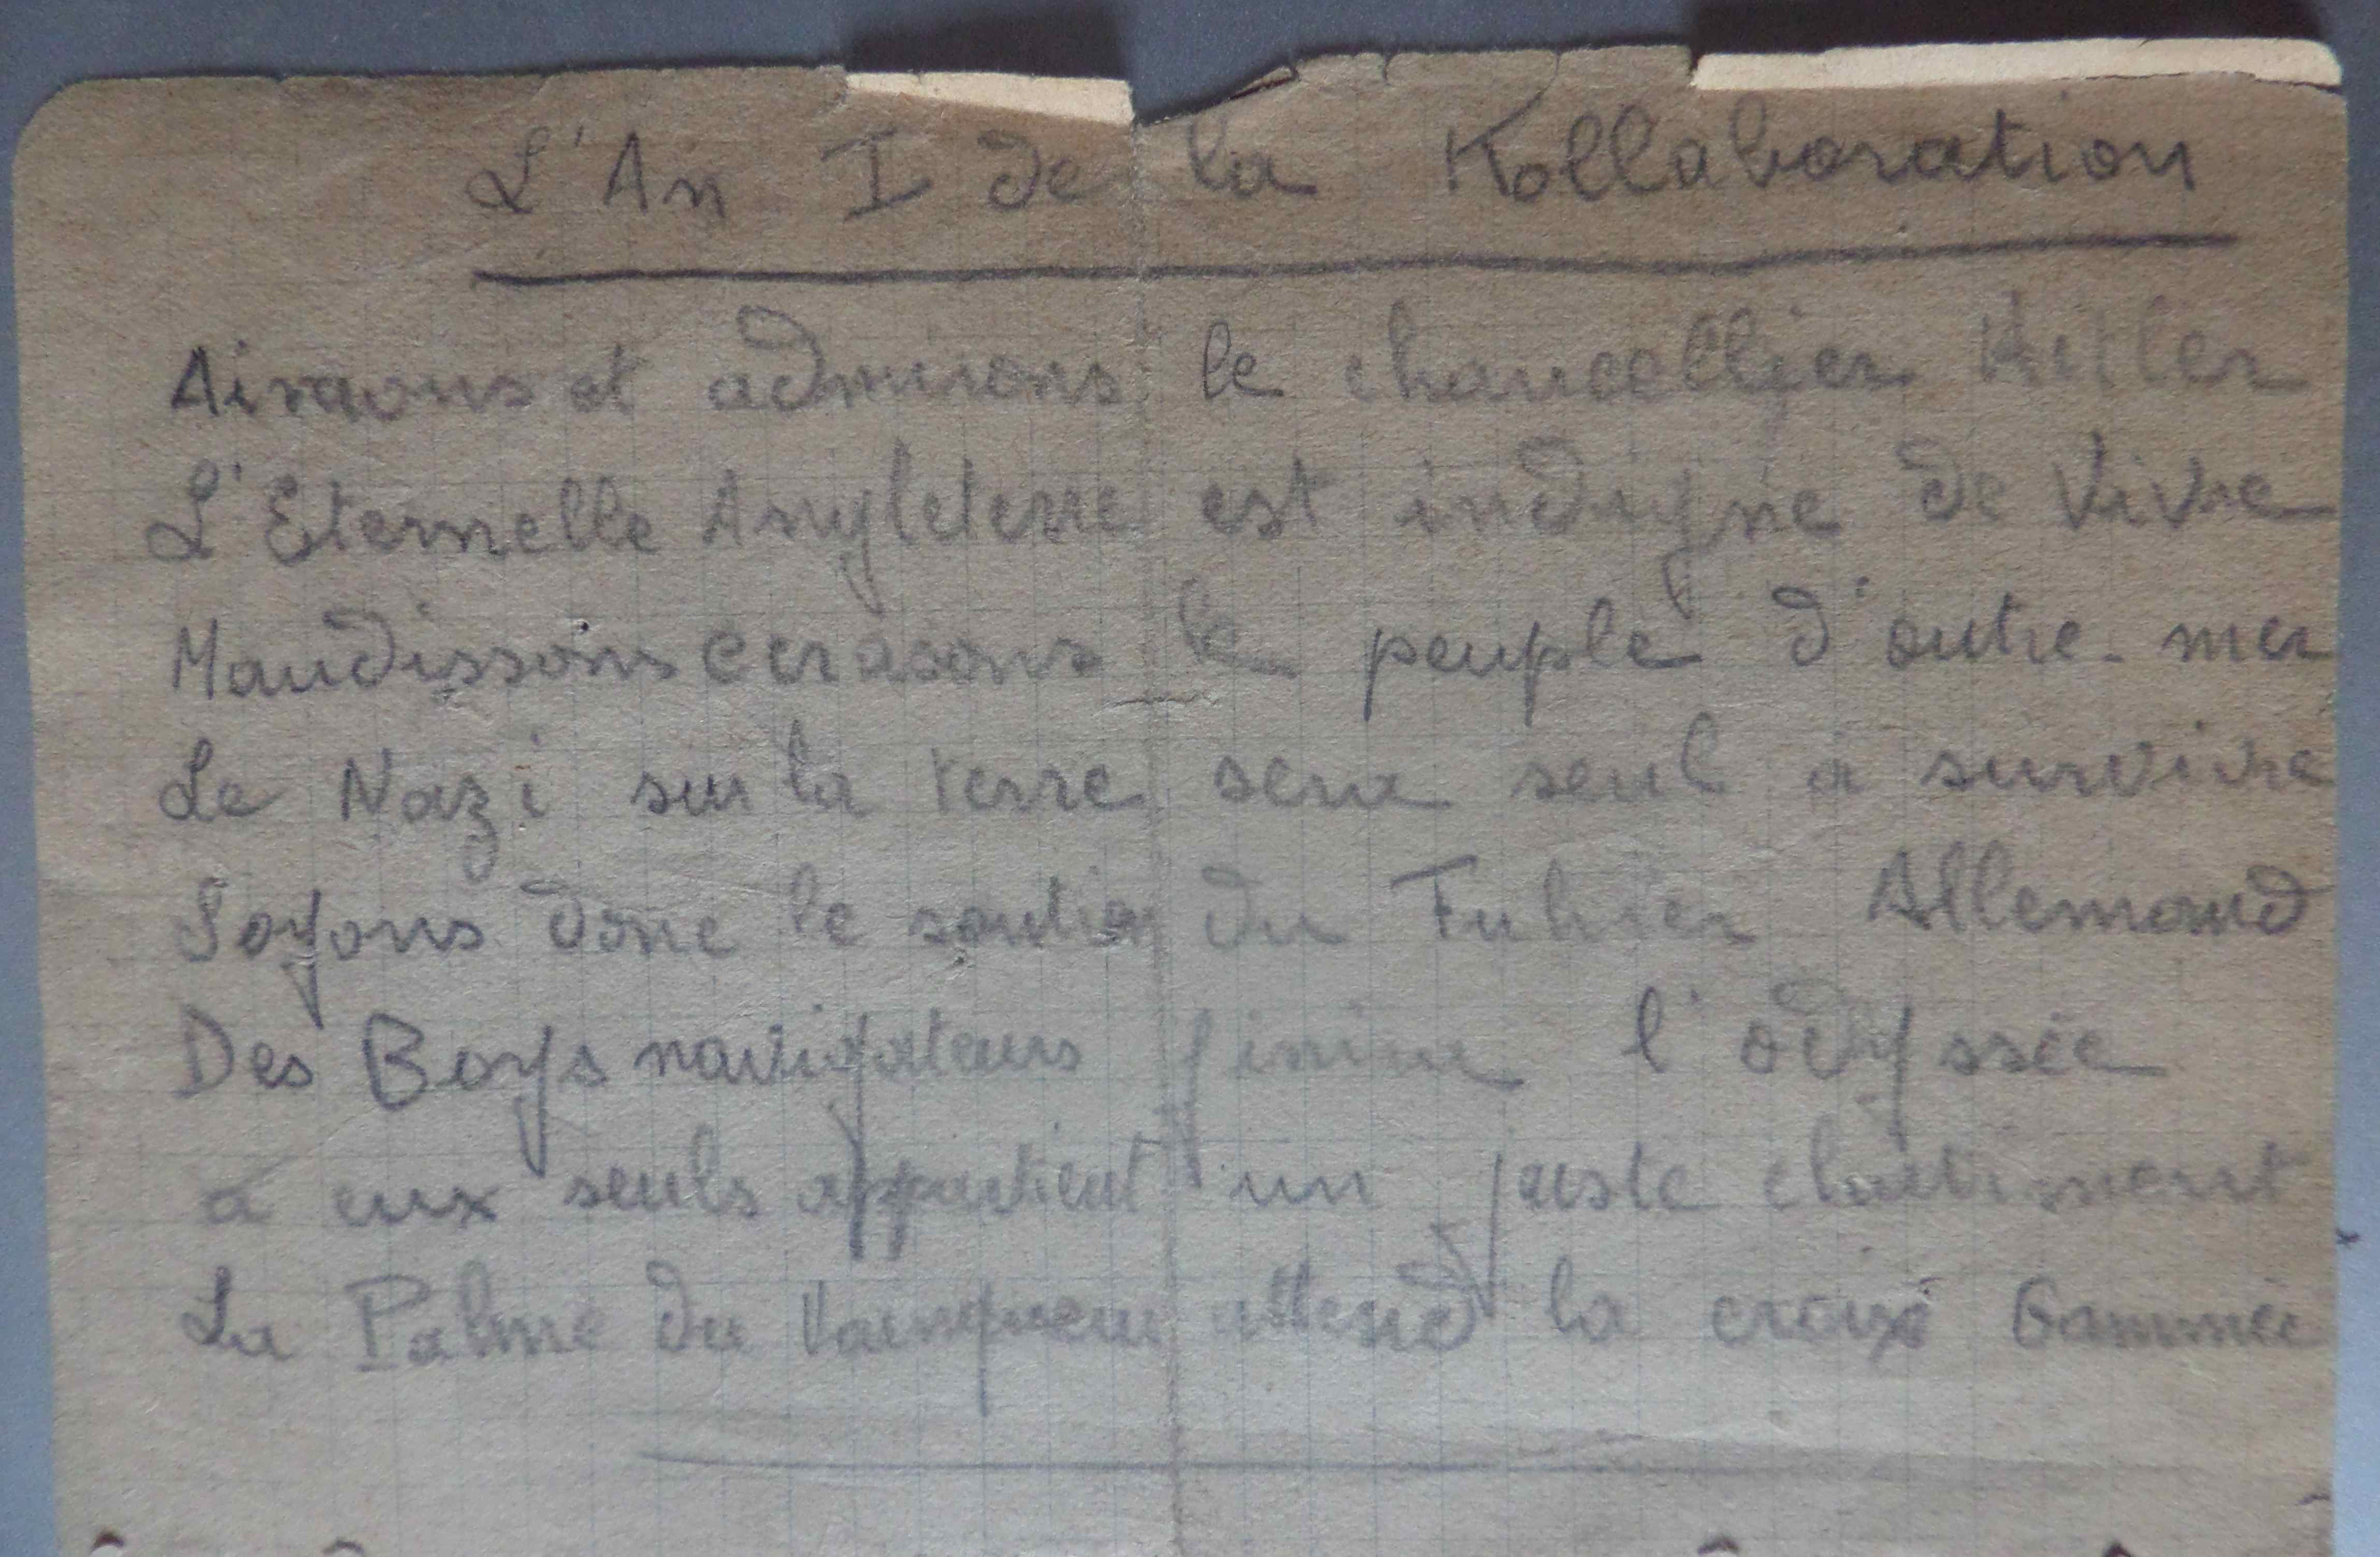 L'An I de la Kollaboration
Aimons et admirons le chancellier Hitler
L'Eternelle Angleterre est indigne de Vivre
Maudissons ecrasons le peuple d'outre-mer
Le Nazi sur la terre sera seul à survivre
Soyons donc le soutien du Fuhrer Allemand
Des Boys navigateurs finira l'odyssée
à eux seuls appartient un juste chatiment
La Palme du Vainqueur attend la croix Gammée